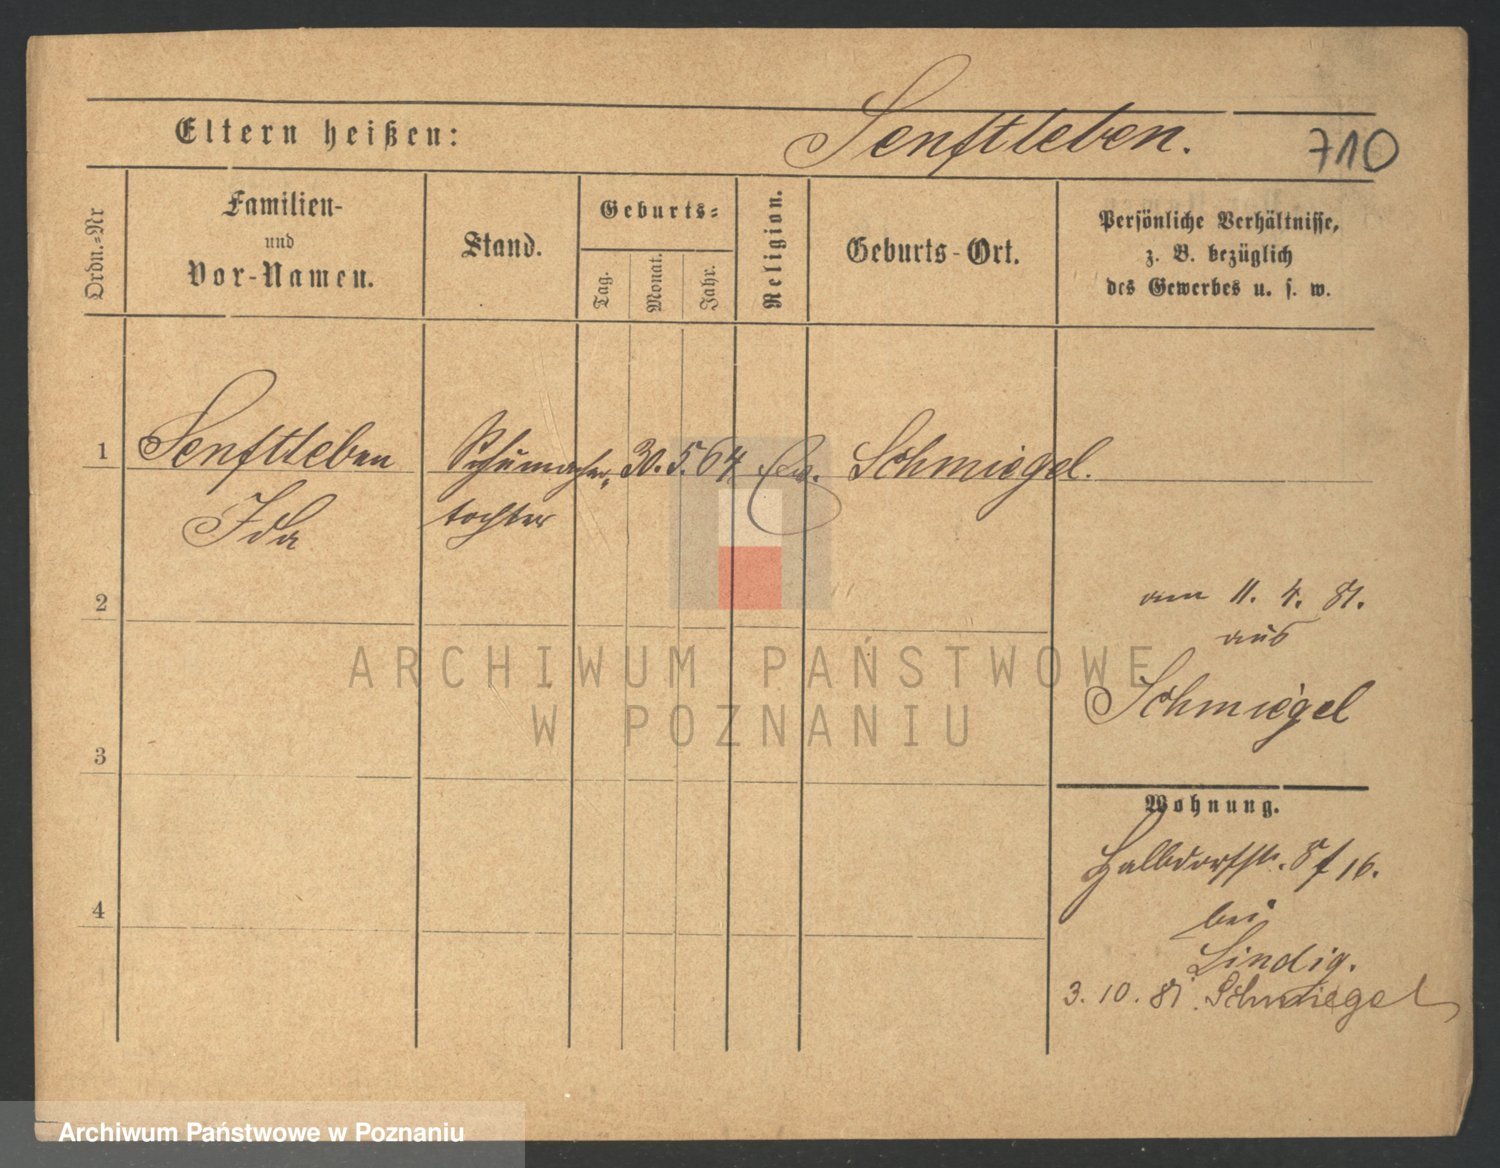 Senftleben.
710
Eltern heißen:
Ordn.=Nr
Familien-
und
Vor-Namen.
Stand.
Geburts=
Tag.
Monat.
Jahr.
Religion.
Geburts-Ort.
Persönliche Verhältnisse,
z. B. bezüglich
des Gewerbes u. s. w.
1
Senftleben
Ida
Schumacher,
tochter
30. 5. 64
ev.
Schmiegel.
2
am 11. 4. 81.
aus
Schmiegel
3
Wohnung.
Halbdorfstr. 8/16.
4
bei
Lindig.
3. 10. 81. Schmiegel
ARCHIWUM PAŃSTWOWE
W POZNANIU
Archiwum Państwowe w Poznaniu